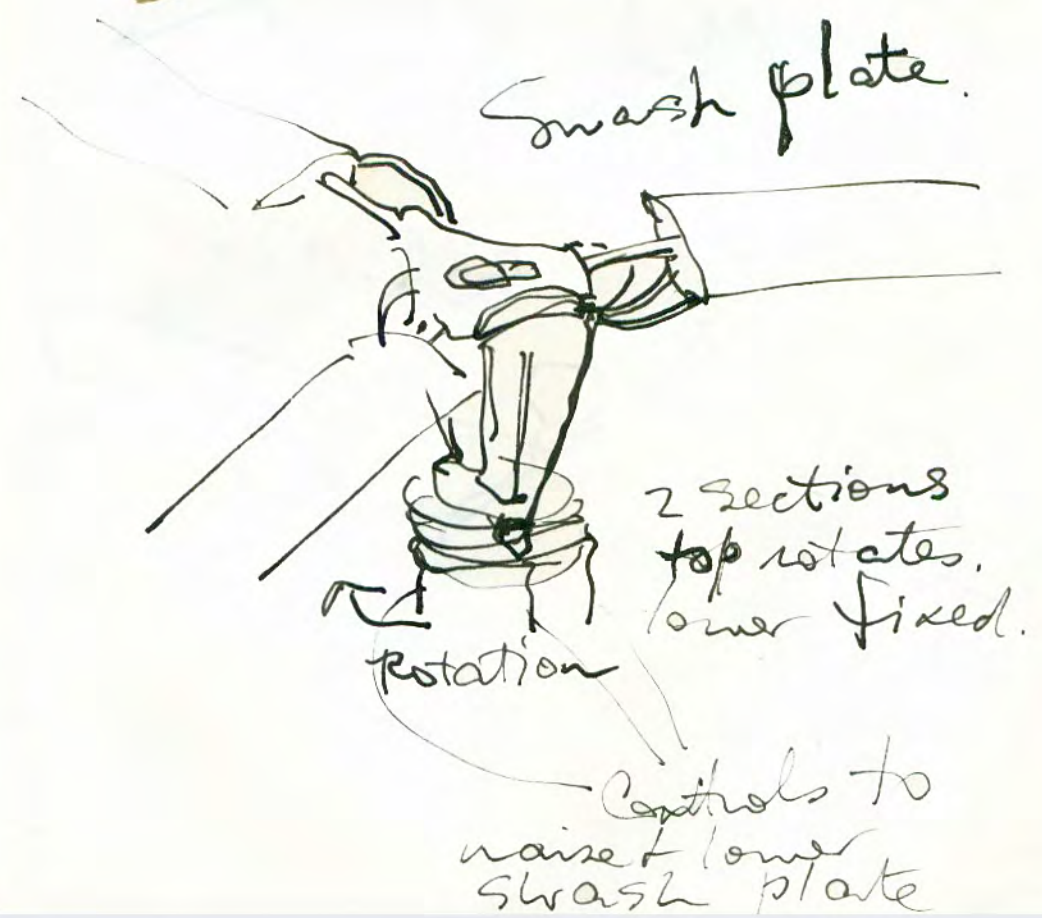 Swash plate.
2 sections
top rotates.
lower fixed.
Rotation
Controls to
raise + lower
swash plate